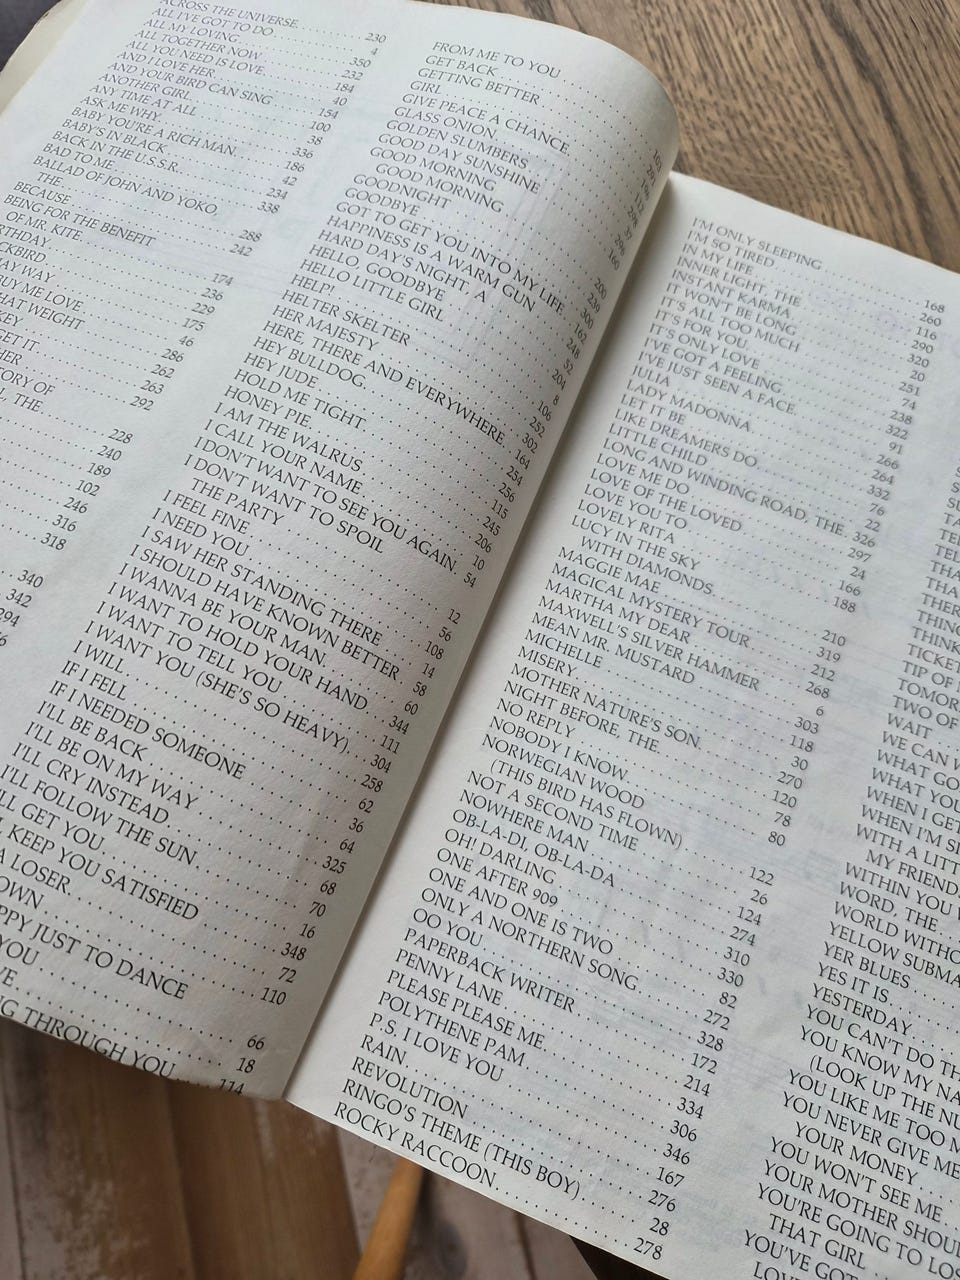 ACROSS THE UNIVERSE 230
ALL I'VE GOT TO DO 4
ALL MY LOVING 350
ALL TOGETHER NOW 232
ALL YOU NEED IS LOVE 184
AND I LOVE HER 40
AND YOUR BIRD CAN SING 154
ANOTHER GIRL 100
ANY TIME AT ALL 38
ASK ME WHY 336
BABY YOU'RE A RICH MAN 186
BABY'S IN BLACK 42
BACK IN THE U.S.S.R. 234
BAD TO ME 338
BALLAD OF JOHN AND YOKO,
THE 288
BECAUSE 242
BEING FOR THE BENEFIT
OF MR. KITE 174
RTHDAY 236
CKBIRD 229
AY WAY 175
BUY ME LOVE 46
HAT WEIGHT 286
KEY 262
GET IT 263
HER 292
TORY OF
L, THE 228
240
189
102
246
316
318
340
342
294
FROM ME TO YOU
GET BACK
GETTING BETTER
GIRL
GIVE PEACE A CHANCE
GLASS ONION
GOLDEN SLUMBERS
GOOD DAY SUNSHINE 160
GOOD MORNING
GOOD MORNING 200
GOODNIGHT 239
GOODBYE 300
GOT TO GET YOU INTO MY LIFE 162
HAPPINESS IS A WARM GUN 248
HARD DAY'S NIGHT, A 52
HELLO, GOODBYE 204
HELLO LITTLE GIRL 8
HELP! 106
HELTER SKELTER 252
HER MAJESTY 302
HERE, THERE AND EVERYWHERE 164
HEY BULLDOG 254
HEY JUDE 256
HOLD ME TIGHT 115
HONEY PIE 245
I AM THE WALRUS 206
I CALL YOUR NAME 10
I DON'T WANT TO SEE YOU AGAIN 54
I DON'T WANT TO SPOIL
THE PARTY 12
I FEEL FINE 56
I NEED YOU 108
I SAW HER STANDING THERE 14
I SHOULD HAVE KNOWN BETTER 58
I WANNA BE YOUR MAN 60
I WANT TO HOLD YOUR HAND 344
I WANT TO TELL YOU 111
I WANT YOU (SHE'S SO HEAVY) 304
I WILL 258
IF I FELL 62
IF I NEEDED SOMEONE 36
I'LL BE BACK 64
I'LL BE ON MY WAY 325
I'LL CRY INSTEAD 68
I'LL FOLLOW THE SUN 70
LL GET YOU 16
KEEP YOU SATISFIED 348
A LOSER 72
OWN 110
PPY JUST TO DANCE
YOU 66
VE 18
NG THROUGH YOU 114
I'M ONLY SLEEPING 168
I'M SO TIRED 260
IN MY LIFE 116
INNER LIGHT, THE 290
INSTANT KARMA 320
IT WON'T BE LONG 20
IT'S ALL TOO MUCH 251
IT'S FOR YOU 74
IT'S ONLY LOVE 238
I'VE GOT A FEELING 322
I'VE JUST SEEN A FACE 91
JULIA 266
LADY MADONNA 264
LET IT BE 332
LIKE DREAMERS DO 76
LITTLE CHILD 22
LONG AND WINDING ROAD, THE 326
LOVE ME DO 297
LOVE OF THE LOVED 24
LOVE YOU TO 166
LOVELY RITA 188
LUCY IN THE SKY
WITH DIAMONDS 210
MAGGIE MAE 319
MAGICAL MYSTERY TOUR 212
MARTHA MY DEAR 268
MAXWELL'S SILVER HAMMER 6
MEAN MR. MUSTARD 303
MICHELLE 118
MISERY 30
MOTHER NATURE'S SON 270
NIGHT BEFORE, THE 120
NO REPLY 78
NOBODY I KNOW 80
NORWEGIAN WOOD
(THIS BIRD HAS FLOWN) 122
NOT A SECOND TIME 26
NOWHERE MAN 124
OB-LA-DI, OB-LA-DA 274
OH! DARLING 310
ONE AFTER 909 330
ONE AND ONE IS TWO 82
ONLY A NORTHERN SONG 272
OO YOU 328
PAPERBACK WRITER 172
PENNY LANE 214
PLEASE PLEASE ME 334
POLYTHENE PAM 306
P.S. I LOVE YOU 346
RAIN 167
REVOLUTION 276
RINGO'S THEME (THIS BOY) 28
ROCKY RACCOON 278
S
SU
TA
TEL
TELL
THA
THAN
THER
THING
THINK
TICKET
TIP OF
TOMOR
TWO OF
WAIT
WE CAN W
WHAT GO
WHAT YOU
WHEN I GET
WHEN I'M SI
WITH A LITT
MY FRIEND
WITHIN YOU W
WORD, THE
WORLD WITHO
YELLOW SUBMA
YER BLUES
YES IT IS
YESTERDAY
YOU CAN'T DO TH
YOU KNOW MY NA
(LOOK UP THE NU
YOU LIKE ME TOO M
YOU NEVER GIVE ME
YOUR MONEY
YOU WON'T SEE ME
YOUR MOTHER SHOUL
YOU'RE GOING TO LOS
THAT GIRL
YOU'VE GOT
LOV